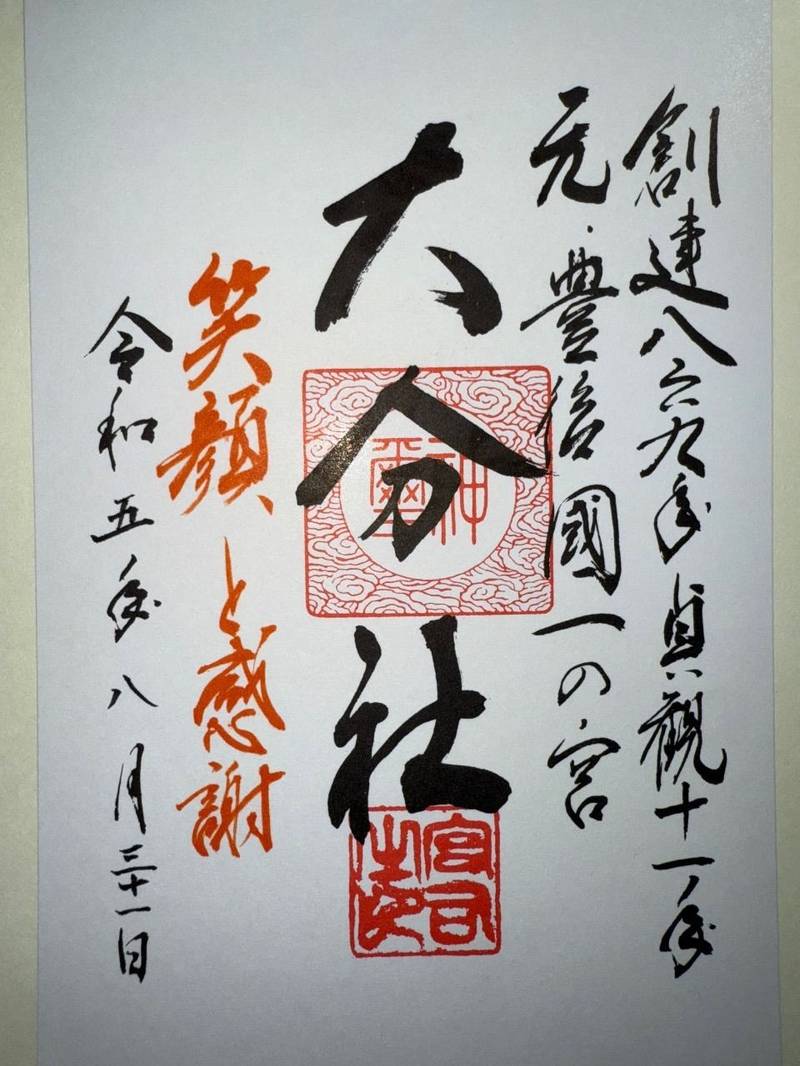 創建八六九年貞観十一年
元・豊後國一の宮
大分社
神璽
宮司之印
笑顔と感謝
令和五年八月三十一日